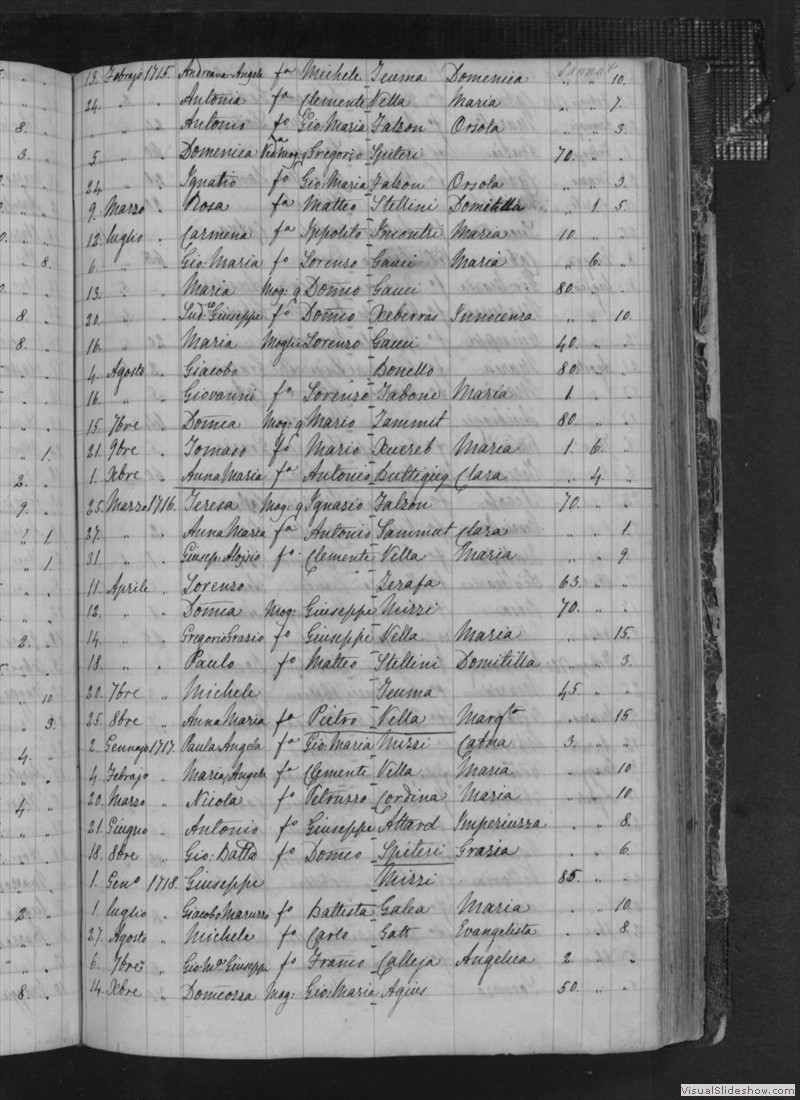 Sannat
13. Febrajo 1715. Andreana Angela fa Michele Zeuma Domenica " " 10.
24. " " Antonia fa Clemente Vella Maria " " 7.
" " " Antonio fo Gio: Maria Falzon Orsola " " 3.
5 " " Domenica Va mog: q Gregorio Spiteri 70. " "
24. " " Ignatio fo Gio: Maria Falzon Orsola " " 3.
9. Marzo " Rosa fa Matteo Stellini Domitilla " 1. 5
12. luglio " Carmena fa Ippolito Incontri Maria 10 " "
6. " " Gio: Maria fo Lorenzo Gauci Maria " 6. "
13. " " Maria Mog: q Domco Gauci 80. " "
20. " " Lud:co Giuseppe fo Domco Xeberras Innocenza " " 10
16. " " Maria Moglie Lorenzo Gauci 40. " "
4. Agosto " Giacobo Bonello 80. " "
16. " " Giovanni fo Lorenzo Tabone Maria 1 " "
15 7bre " Domca Mog: q Mario Zammit 80. " "
21. 9bre " Tomaso fo Mario Xuereb Maria 1. 6. "
1. Xbre " Anna Maria fa Antonio Buttigieg Clara " 4. "
25. Marzo 1716. Teresa Mog: q Ignazio Falzon 70. " "
27. " " Anna Maria fa Antonio Sammut Clara " " 1.
31. " " Giusep: Aloisio fo Clemente Vella Maria " " 9
11. Aprile " Lorenzo Zerafa 63. " "
12. " " Domca Mog: Giuseppe Mizzi 70. " "
14. " " Gregorio Grazio fo Giuseppe Vella Maria " " 15.
18. " " Paulo fo Matteo Stellini Domitilla " " 3.
20. 7bre " Michele Zeuma 45. " "
25. 8bre " Anna Maria fa Pietro Vella Margta " " 15
2. Gennajo 1717. Paula Angela fa Gio: Maria Mizzi Catna 3. " "
4. Febrajo " Maria Angela fa Clemente Vella Maria " " 10
20. Marzo " Nicola fo Petruzzo Cordina Maria " " 10
21. Giugno " Antonio fo Giuseppe Attard Imperiuzza " " 8.
18. 8bre " Gio: Batta fo Domco Spiteri Grazia " " 6.
1. Geno 1718. Giuseppe Mizzi 85. " "
1 luglio " Giacobo Maruzzo fo Battista Galea Maria " " 10.
27. Agosto " Michele fo Carlo Gatt Evangelista " " 8.
6. 7bre " Gio: Ma Giuseppe fo Franco Calleja Angelica 2 " "
14. Xbre " Domcossa Mog: Gio: Maria Agius 50. " "
VisualSlideshow.com